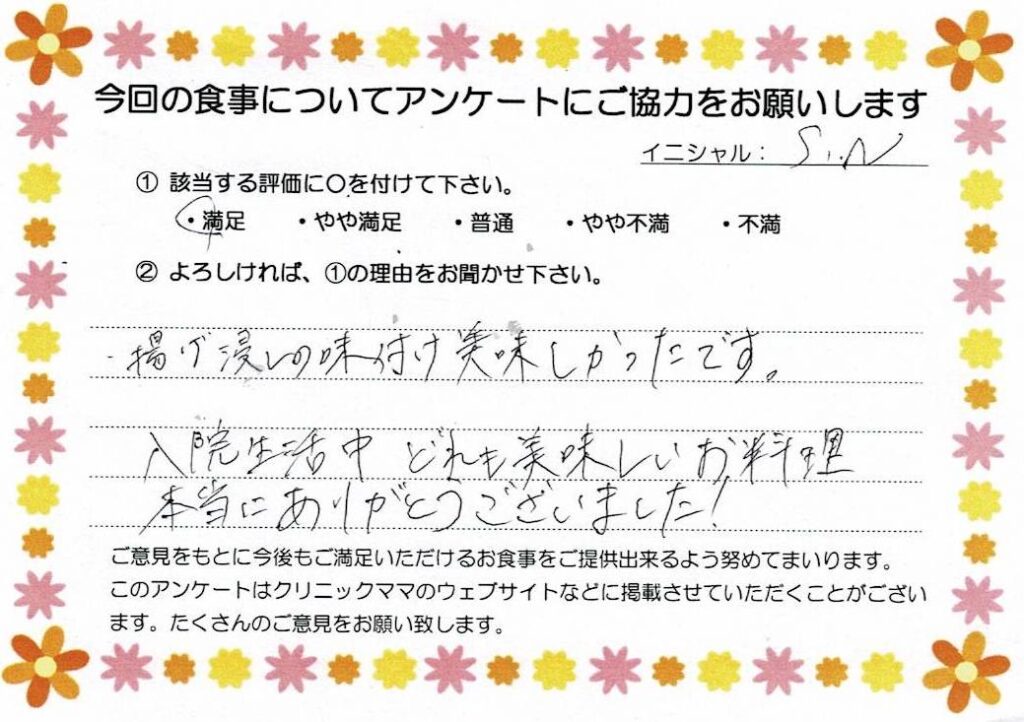 今回の食事についてアンケートにご協力をお願いします
イニシャル: S.N
① 該当する評価に○を付けて下さい。
・満足 ・やや満足 ・普通 ・やや不満 ・不満
② よろしければ、①の理由をお聞かせ下さい。
・揚げ浸しの味付け美味しかったです。
入院生活中 どれも美味しいお料理
本当にありがとうございました!
ご意見をもとに今後もご満足いただけるお食事をご提供出来るよう努めてまいります。
このアンケートはクリニックママのウェブサイトなどに掲載させていただくことがござい
ます。たくさんのご意見をお願い致します。